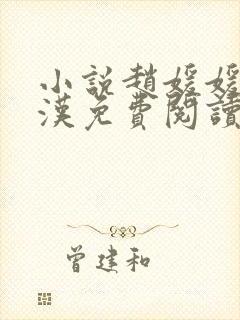 小說趙媛媛
漢免費閱讀
曾建和